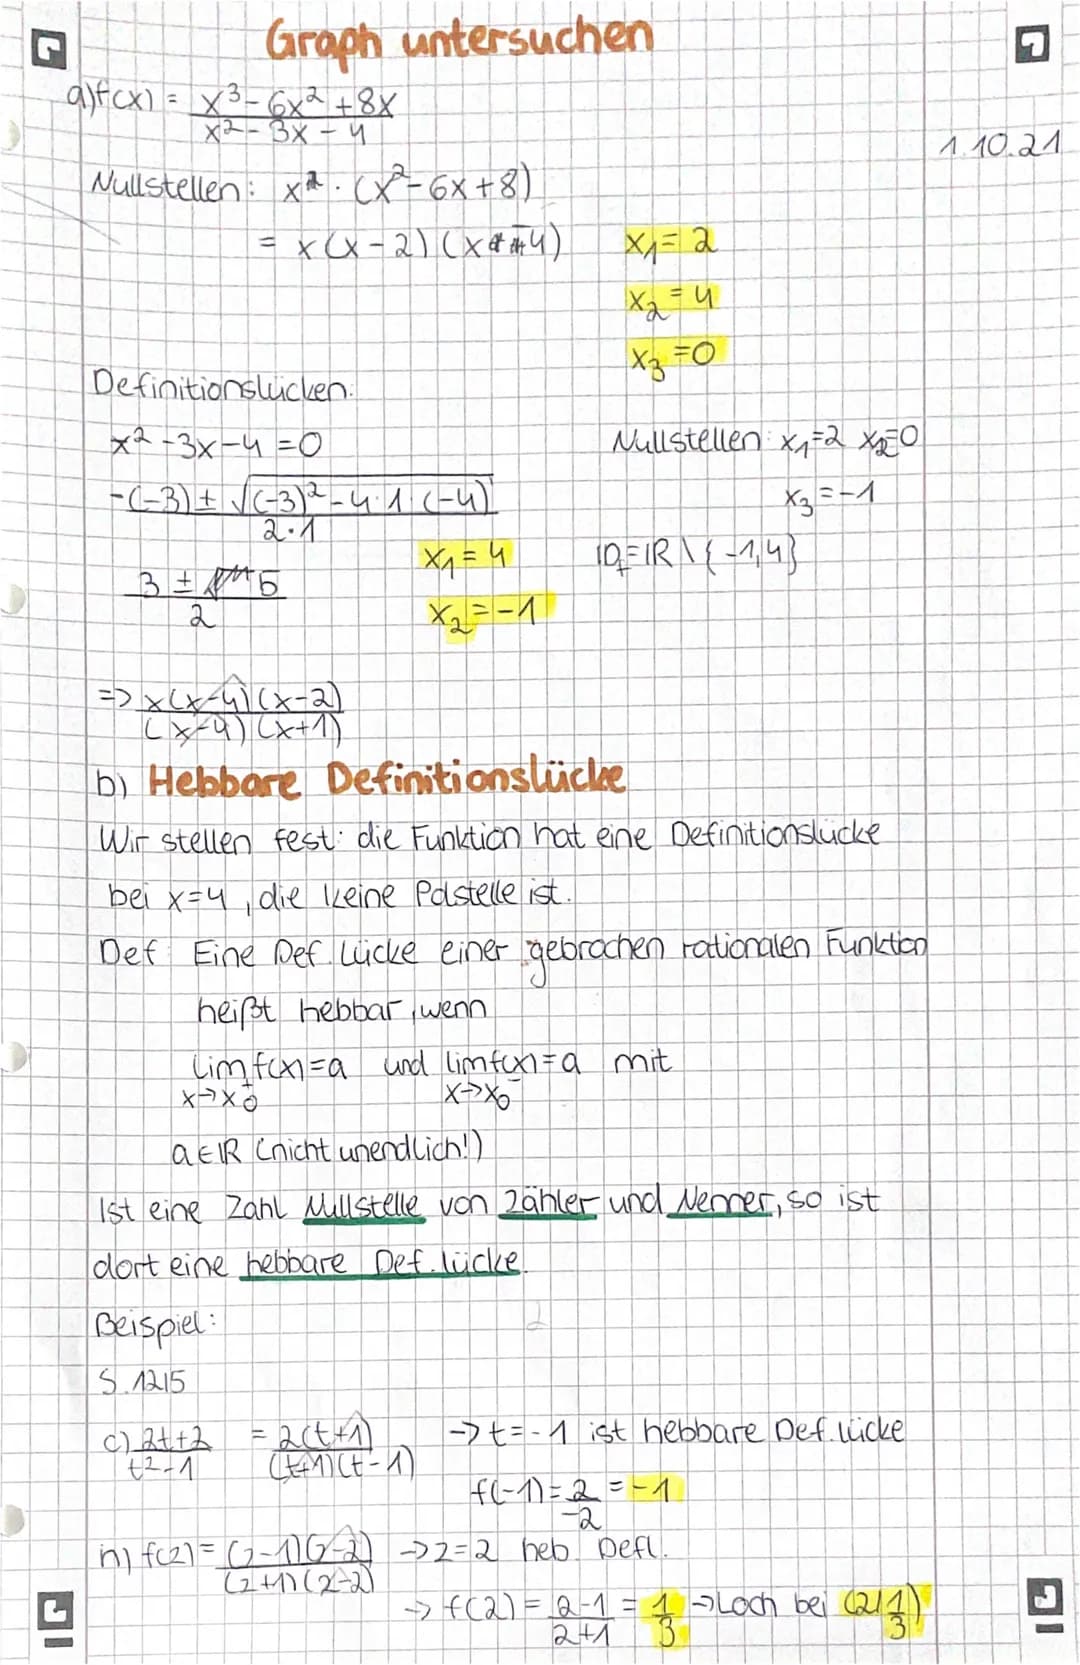 Graph untersuchen
a) f(x) = x³ - 6x² + 8x / x² - 3x - 4
1.10.21
Nullstellen: x · (x² - 6x + 8)
= x(x-2)(x-4)
x₁ = 2
x₂ = 4
x₃ = 0
Definitionslücken:
x² - 3x - 4 = 0
Nullstellen: x₁=2 x₂=0
x₃ = -1
-(-3) ± √(-3)² - 4·1·(-4) / 2·1
x₁ = 4
x₂ = -1
D_f = ℝ \ {-1,4}
3 ± 5 / 2
=> x(x-4)(x-2) / (x-4)(x+1)
b) Hebbare Definitionslücke
Wir stellen fest: die Funktion hat eine Definitionslücke
bei x=4, die keine Polstelle ist.
Def: Eine Def. Lücke einer gebrochen rationalen Funktion
heißt hebbar, wenn
lim f(x) = a und lim f(x) = a mit
x→x₀⁺ x→x₀⁻
a∈ℝ (nicht unendlich!)
Ist eine Zahl Nullstelle von Zähler und Nenner, so ist
dort eine hebbare Def. lücke.
Beispiel:
S. 12/5
c) 2t+2 / t²-1 = 2(t+1) / (t+1)(t-1) → t = -1 ist hebbare Def. lücke
f(-1) = 2 / -2 = -1
h) f(z) = (z-1)(z-2) / (z+1)(z-2) → z=2 heb. Defl.
→ f(2) = 2-1 / 2+1 = 1/3 → Loch bei (2|1/3)